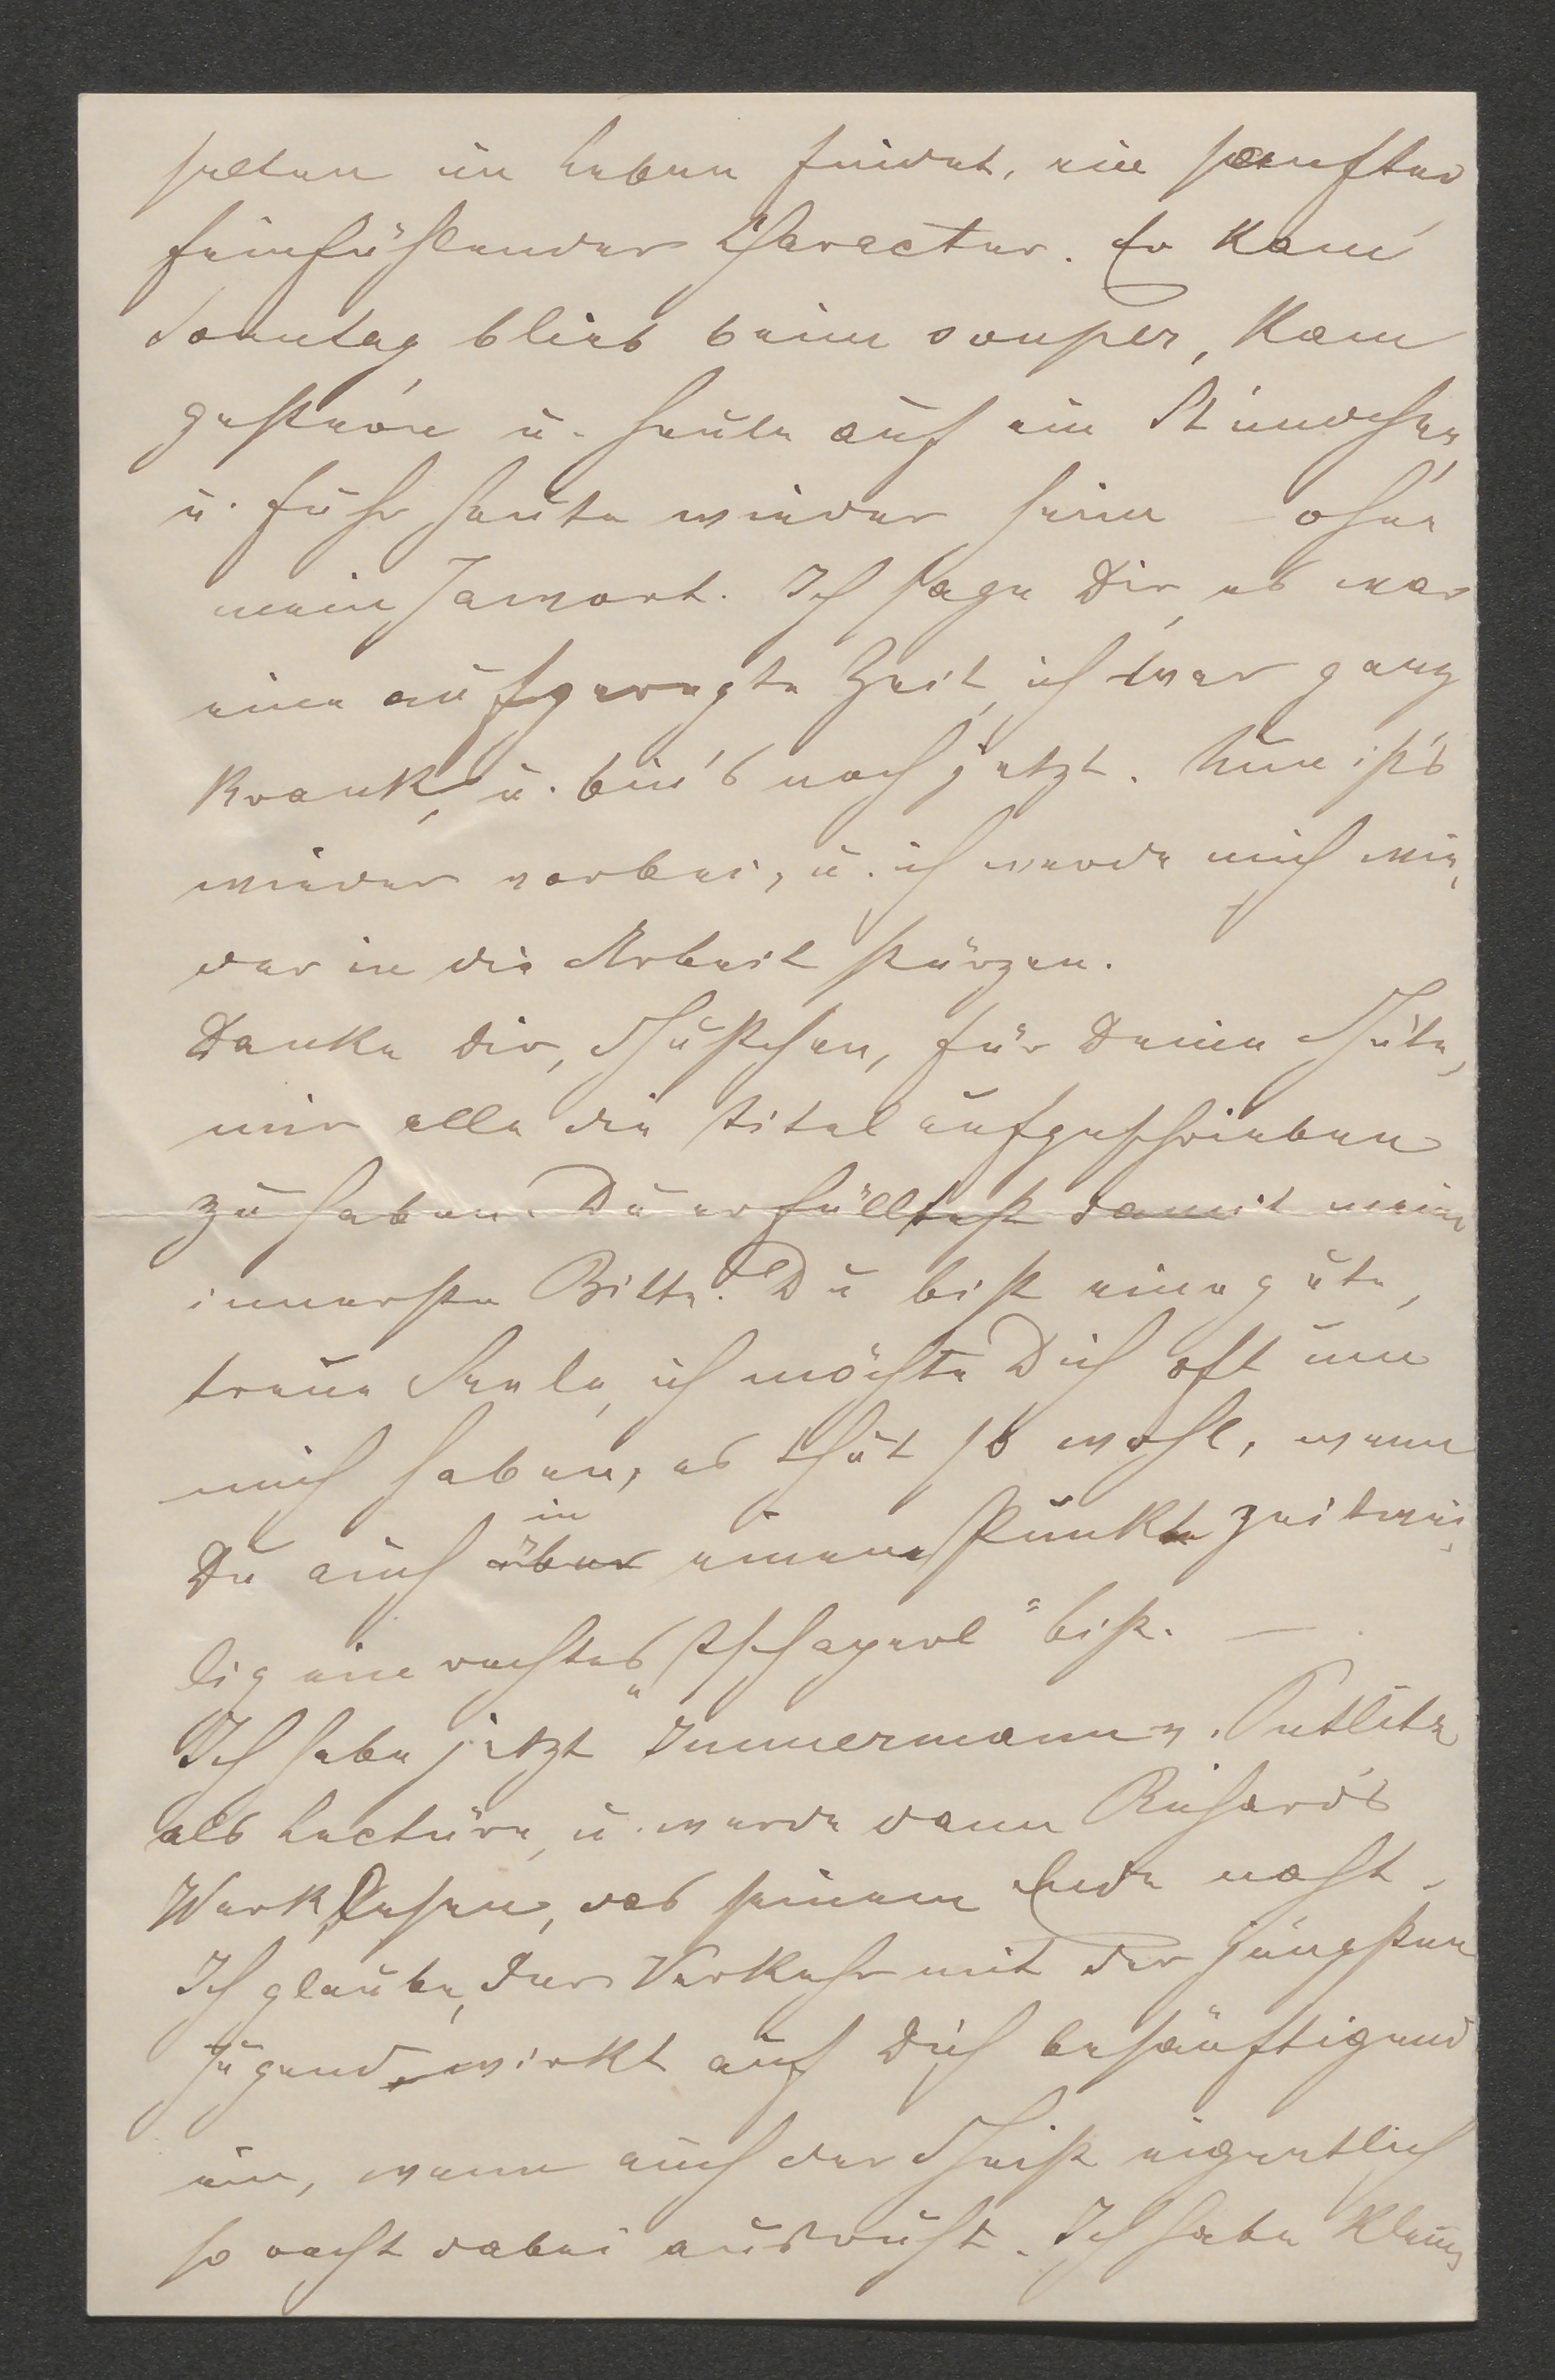 selten im Leben findet, ein sanfter
feinfühlender Character. Er kam
Sonntag blieb beim souper, kam
gestern u. heute auf ein Stündchen,
u. fuhr heute wieder heim – ohne
mein Jawort. Ich sage Dir, es war
eine aufgeregte Zeit, ich war ganz
krank, u. bin's noch jetzt. Nun ist's
wieder vorbei, u. ich werde mich wie,
der in die Arbeit stürzen.
Danke Dir, Gustchen, für Deine Güte,
mir alle die Titel aufgeschrieben
zu haben. Du erfülltest damit meine
innerste Bitte. Du bist eine gute,
treue Seele, ich möchte Dich oft um
mich haben, es thut so wohl, wenn
in
Du auch über einem Punkte zeitwei,
lig ein rechtes „Tschaperl" bist. —
Ich habe jetzt Immermann v. Putlitz
als Lectüre, u. werde dann Richard's
Werk lesen, das seinem Ende naht.
Ich glaube, der Verkehr mit der jüngsten
Jugend wirkt auf Dich besänftigend
ein, wenn auch der Geist eigentlich
so recht dabei ausruht. Ich habe